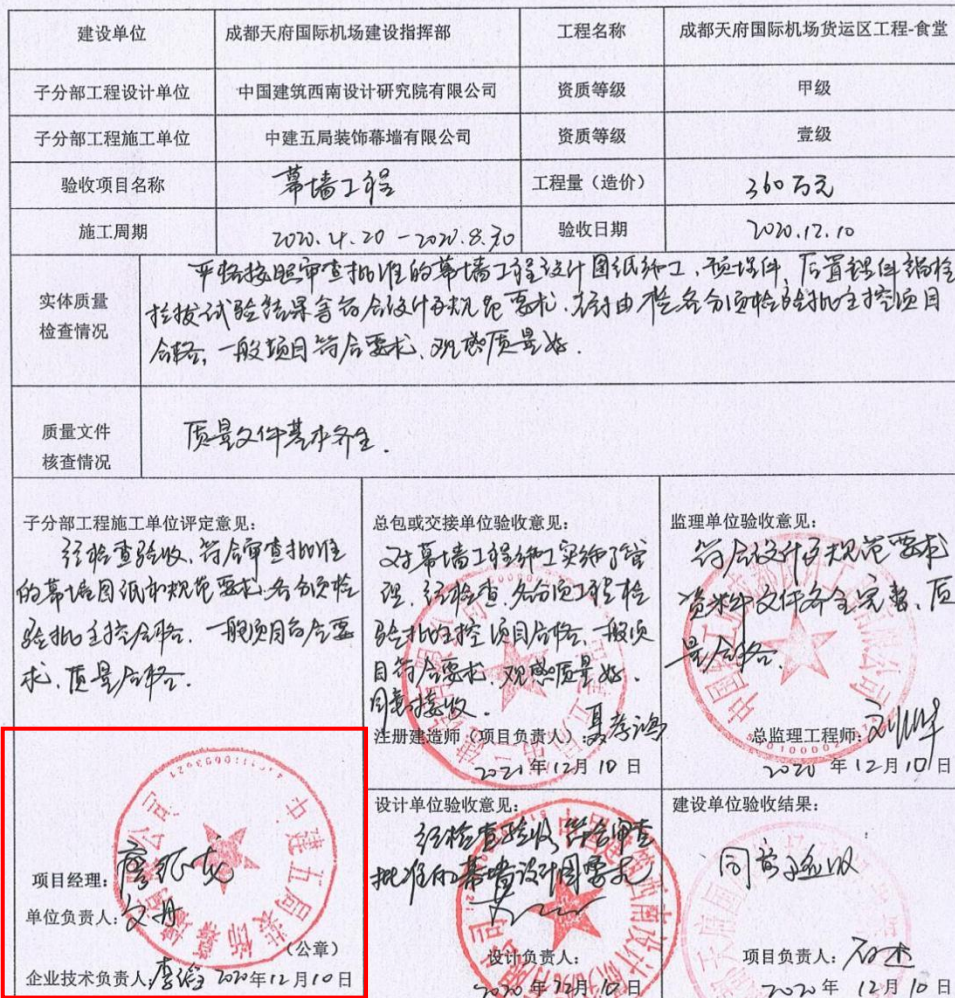 建设单位 成都天府国际机场建设指挥部 工程名称 成都天府国际机场货运区工程-食堂
子分部工程设计单位 中国建筑西南设计研究院有限公司 资质等级 甲级
子分部工程施工单位 中建五局装饰幕墙有限公司 资质等级 壹级
验收项目名称 幕墙工程 工程量（造价） 360万元
施工周期 2020.4.20-2020.8.30 验收日期 2020.12.10
实体质量
检查情况
严格按照审查批准的幕墙工程设计图纸施工、预埋件、后置锚件
试验结果符合设计及规范要求 各分项检验批主控项目
合格，一般项目符合要求，观感质量好.
质量文件
核查情况
质量文件基本齐全.
子分部工程施工单位评定意见：
经检查验收、符合审查批准
的幕墙图纸和规范要求，各分项检
验批主控合格、一般项目符合要
求，质量合格.
总包或交接单位验收意见：
对幕墙工程施工实施了管
理，经检查，各分项工程检
验批主控项目合格、一般项
目符合要求，观感质量好.
同意接收.
注册建造师（项目负责人）：
2021年12月10日
监理单位验收意见：
符合设计及规范要求
资料文件齐全完整、质
量合格.
总监理工程师：
2020年12月10日
中建五局装饰幕墙有限公司
项目经理：
单位负责人：文丹
（公章）
企业技术负责人： 2020年12月10日
设计单位验收意见：
经检查验收，符合审查
批准的幕墙设计图要求
设计负责人：
2020年12月10日
建设单位验收结果：
同意验收
项目负责人：石杰
2020年12月10日